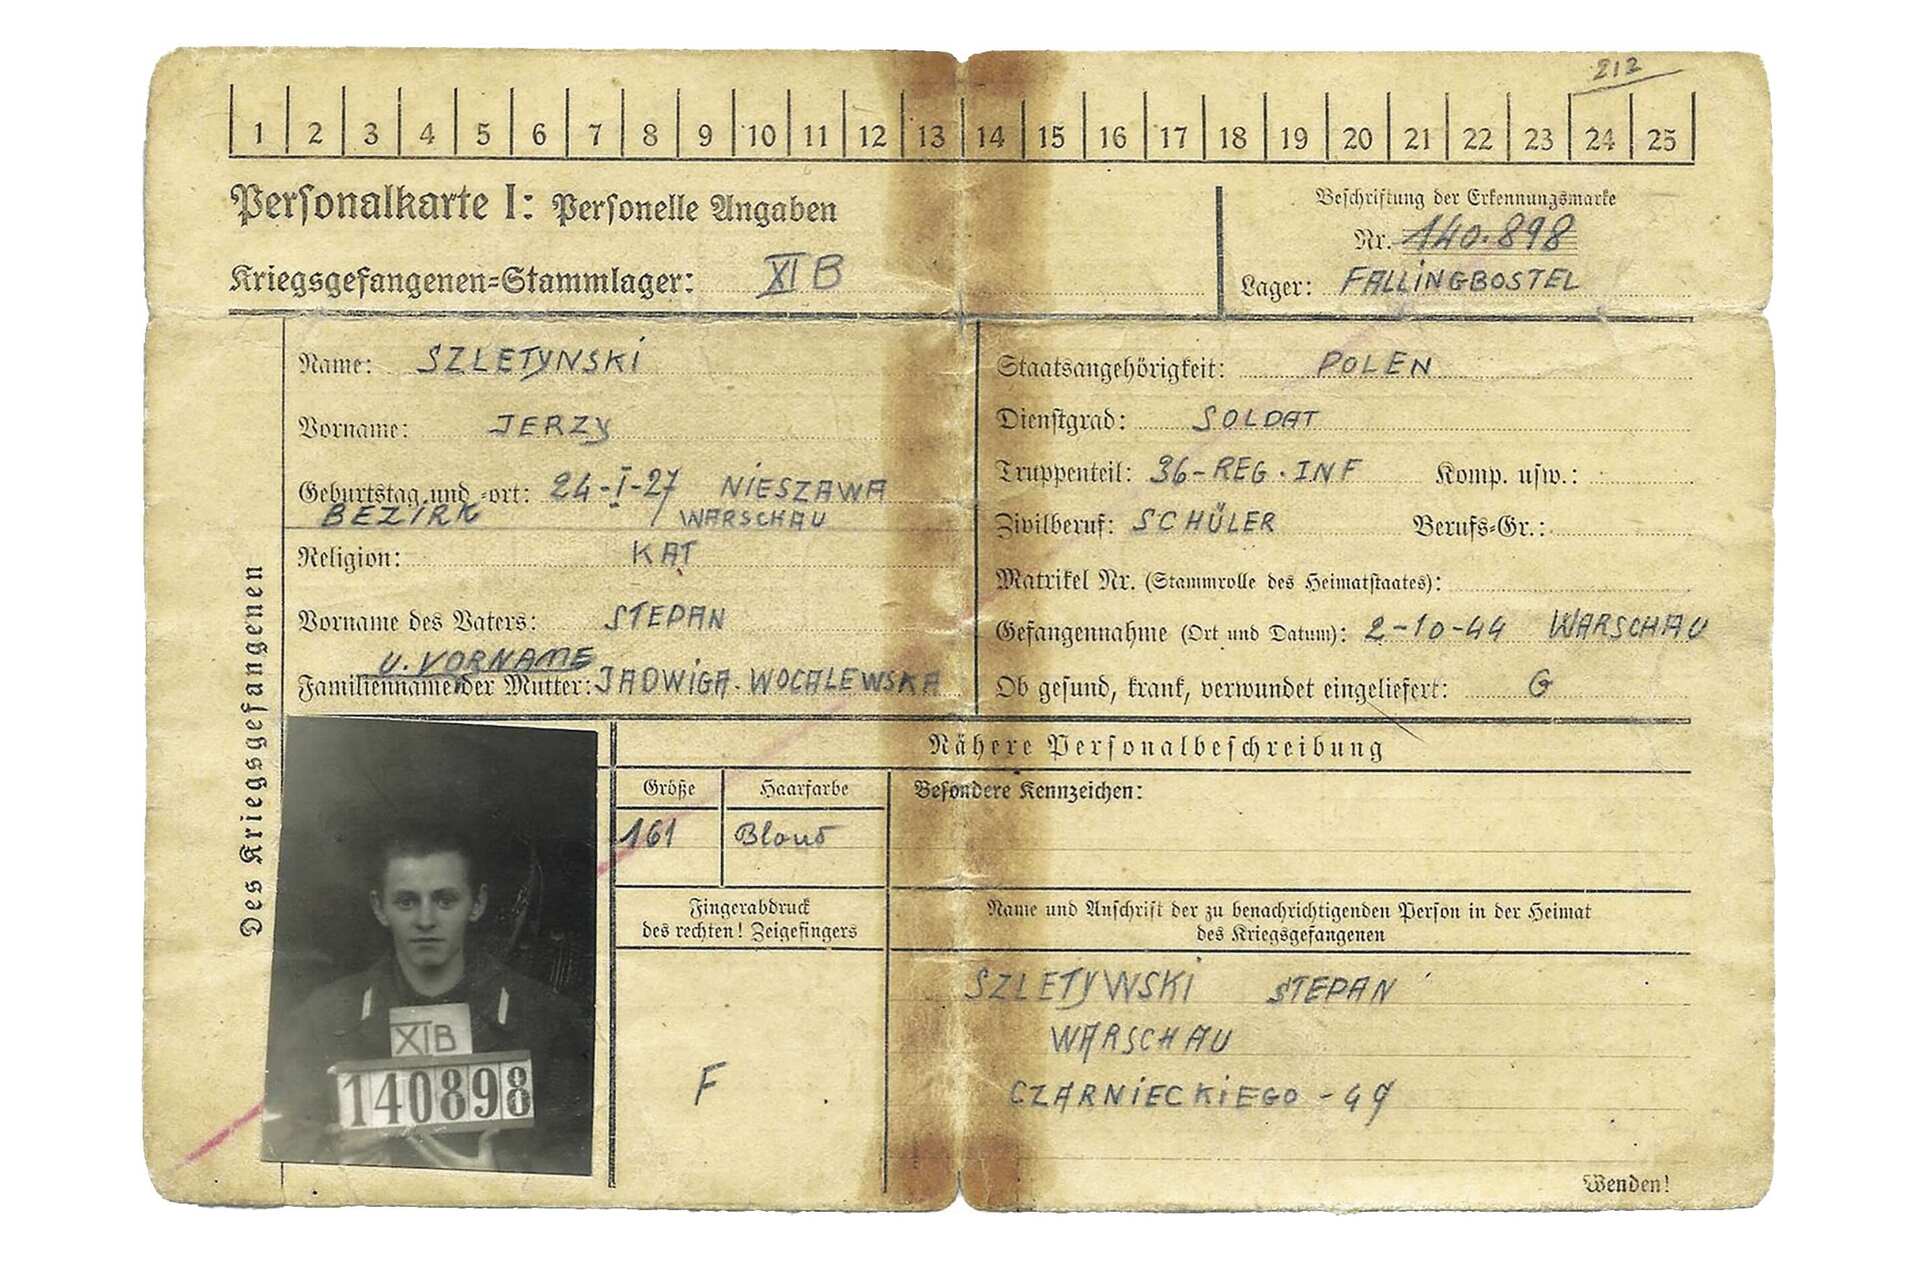 212
1 2 3 4 5 6 7 8 9 10 11 12 13 14 15 16 17 18 19 20 21 22 23 24 25
Personalkarte I: Personelle Angaben
Kriegsgefangenen=Stammlager: XI B
Beschriftung der Erkennungsmarke
Nr. 140.898
Lager: FALLINGBOSTEL
Des Kriegsgefangenen
Name: SZLETYNSKI
Vorname: JERZY
Geburtstag und =ort: 24-I-27 NIESZAWA
BEZIRK / WARSCHAU
Religion: KAT
Vorname des Vaters: STEPAN
U. VORNAME
Familienname der Mutter: JADWIGA. WOCALEWSKA
Staatsangehörigkeit: POLEN
Dienstgrad: SOLDAT
Truppenteil: 36-REG. INF Komp. usw.:
Zivilberuf: SCHÜLER Berufs=Gr.:
Matrikel Nr. (Stammrolle des Heimatstaates):
Gefangennahme (Ort und Datum): 2-10-44 WARSCHAU
Ob gesund, krank, verwundet eingeliefert: G
Nähere Personalbeschreibung
Größe Haarfarbe Besondere Kennzeichen:
161 Blond
Fingerabdruck
des rechten! Zeigefingers
F
Name und Anschrift der zu benachrichtigenden Person in der Heimat
des Kriegsgefangenen
SZLETYWSKI STEPAN
WARSCHAU
CZARNIECKIEGO - 49
XIB
140898
Wenden!